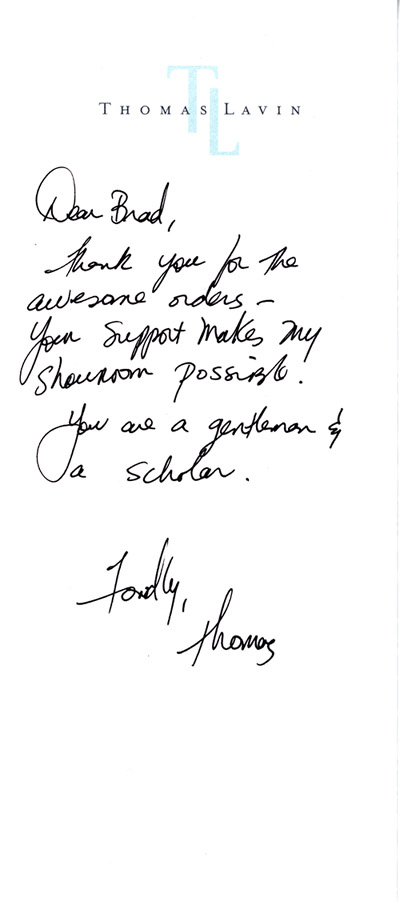 TL
THOMAS LAVIN
Dear Brad,
Thank you for the
awesome orders –
Your support makes my
showroom possible.
You are a gentleman &
a scholar.
Fondly,
Thomas